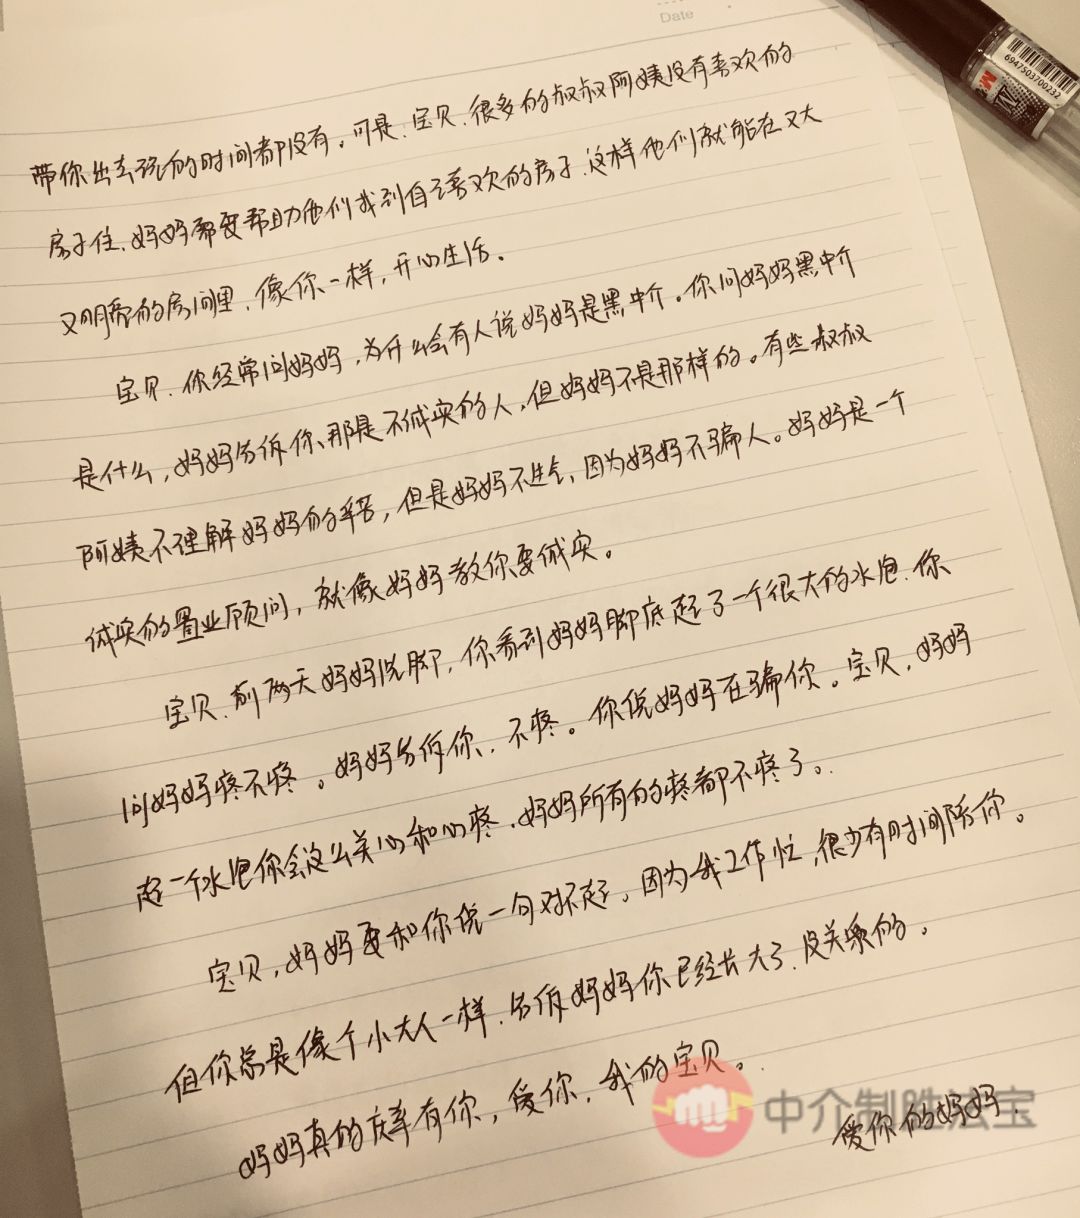 Date
6947503700232
带你出去玩的时间都没有。可是、宝贝、很多的叔叔阿姨没有喜欢的
房子住、妈妈都要帮助他们找到自己喜欢的房子、这样他们就能在又大
又明亮的房间里、像你一样，开心生活。
宝贝、你经常问妈妈，为什么会有人说妈妈是黑中介。你问妈妈黑中介
是什么，妈妈告诉你、那是不诚实的人，但妈妈不是那样的。有些叔叔
阿姨不理解妈妈的辛苦，但是妈妈不生气、因为妈妈不骗人。妈妈是一个
诚实的置业顾问，就像妈妈教你要诚实。
宝贝、前两天妈妈洗脚，你看到妈妈脚底起了一个很大的水泡、你
问妈妈疼不疼。妈妈告诉你、不疼。你说妈妈在骗你。宝贝，妈妈
起一个水泡你会这么关心和心疼、妈妈所有的疼都不疼了。
宝贝，妈妈要和你说一句对不起，因为我工作忙，很少有时间陪你。
但你总是像个小大人一样、告诉妈妈你已经长大了、没关系的。
妈妈真的庆幸有你，爱你，我的宝贝。
爱你的妈妈.
中介制胜法宝